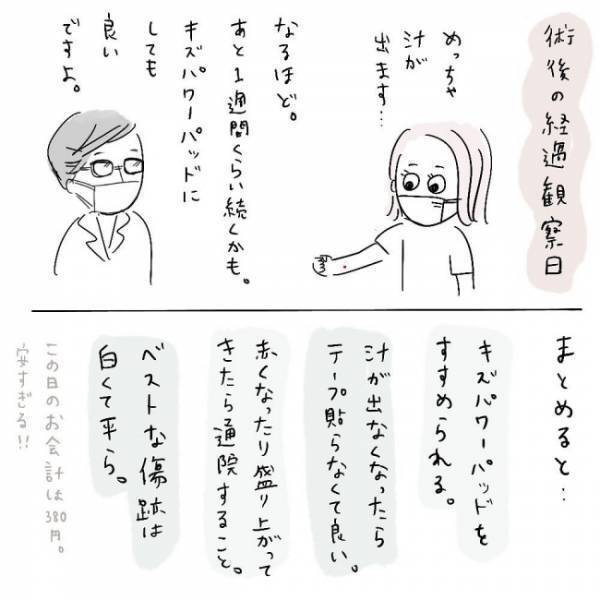 術後の経過観察日
めっちゃ
汁が
出ます…
なるほど。
あと1週間くらい続くかも。
キズパワーパッドに
しても
良い
ですよ。
まとめると…
キズパワーパッドを
すすめられる。
汁が出なくなったら
テープ貼らなくて良い。
赤くなったり盛り上がって
きたら通院すること。
ベストな傷跡は
白くて平ら。
この日のお会計は380円。
安すぎる!!